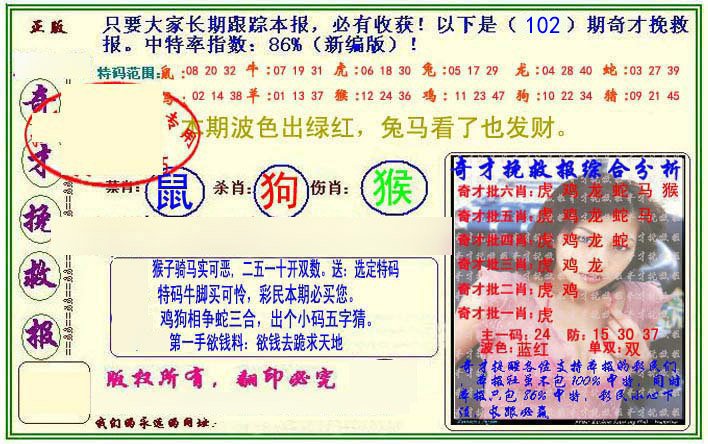 正版
只要大家长期跟踪本报，必有收获！以下是（102）期奇才挽救
报。中特率指数：86%（新编版）！
特码范围:鼠:08 20 32 牛:07 19 31 虎:06 18 30 兔:05 17 29 龙:04 28 40 蛇:03 27 39
马:02 14 38 羊:01 13 37 猴:12 24 36 鸡:11 23 47 狗:10 22 34 猪:09 21 45
专用
本期波色出绿红，兔马看了也发财。
奇才挽救报
禁肖:鼠 杀肖:狗 伤肖:猴
猴子骑马实可恶，二五一十开双数。送：选定特码
特码牛脚买可怜，彩民本期必买您。
鸡狗相争蛇三合，出个小码五字猜。
第一手欲钱料：欲钱去跪求天地
版权所有，翻印必究
我们的永远的网址:
奇才挽救报综合分析
奇才批六肖:虎 鸡 龙 蛇 马 猴
奇才批五肖:虎 鸡 龙 蛇 马
奇才批四肖:虎 鸡 龙 蛇
奇才批三肖:虎 鸡 龙
奇才批二肖:虎 鸡
奇才批一肖:虎
主一码:24 防:15 30 37
波色:蓝红 单双:双
奇才提醒各位支持本报的彩民们，
本报社虽不包100%中特，同时
本报只包86%中特，彩民小心下
注，长跟必赢